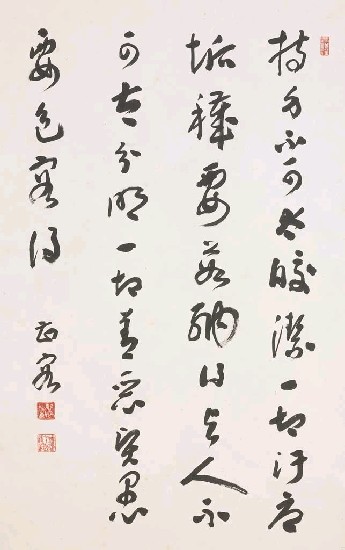 持身不可太皎潔一切汙辱
垢穢要茹納得与人不
可太分明一切善惡賢愚
要包容得